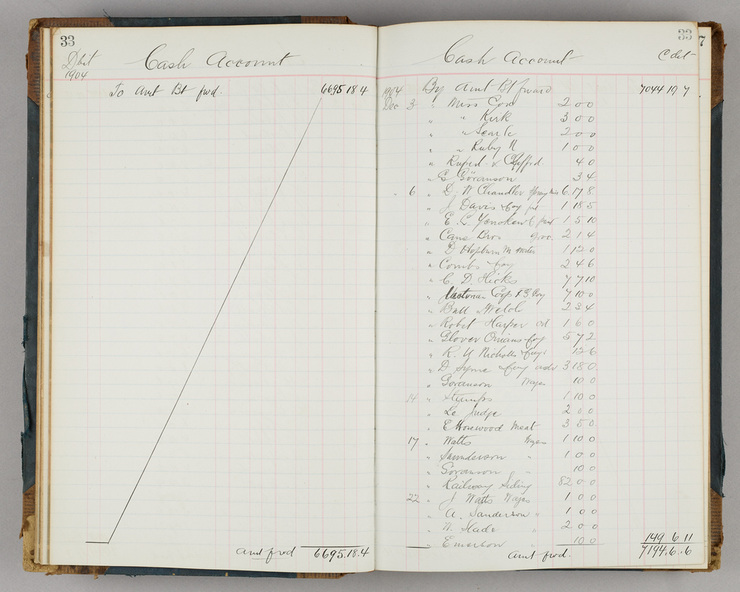 33
Debit
Cash Account
1904
To Amt Bt fwd. 6695.18.4
Amt fwd 6695.18.4
33
7
Cash Account
Cdit
1904 By Amt Bt forward 7044 19 7
Dec 3 " Miss Cox 2 0 0
" " Kirk 3 0 0
" " Searle 2 0 0
" " Ruby N 1 0 0
" 4 0
" E Goranson 3 4
" 6 " G W Chandler 6.17.8
" J Davis & Coy 1 18 5
" E. C. 1 5 10
" Cane Bros Groc 2 1 4
" E Hepburn 1 12 0
" Combs 2 4 6
" C. D. Hicks 7 7 10
" 7 10 0
" Ball Welch 2 3 4
" Robt Harper 1 6 0
" Glover Onians & Coy 5 7 2
" R. U Nicholls & Coy 12 6
" D Syme & Coy 3 18 0
" Goranson Wages 10 0
14 " Stamps 1 10 0
" Le Judge 2 0 0
" E Horewood Meat 3 5 0
17 " Watts Wages 1 10 0
" Saunderson " 1 0 0
" Goranson " 10 0
" Railway Siding 82 0 0
22 " J Watts Wages 1 0 0
" A. Sanderson " 1 0 0
" W. Slade " 2 0 0
" Emerson 10 0 149 6 11
Amt fwd. 7194.6.6